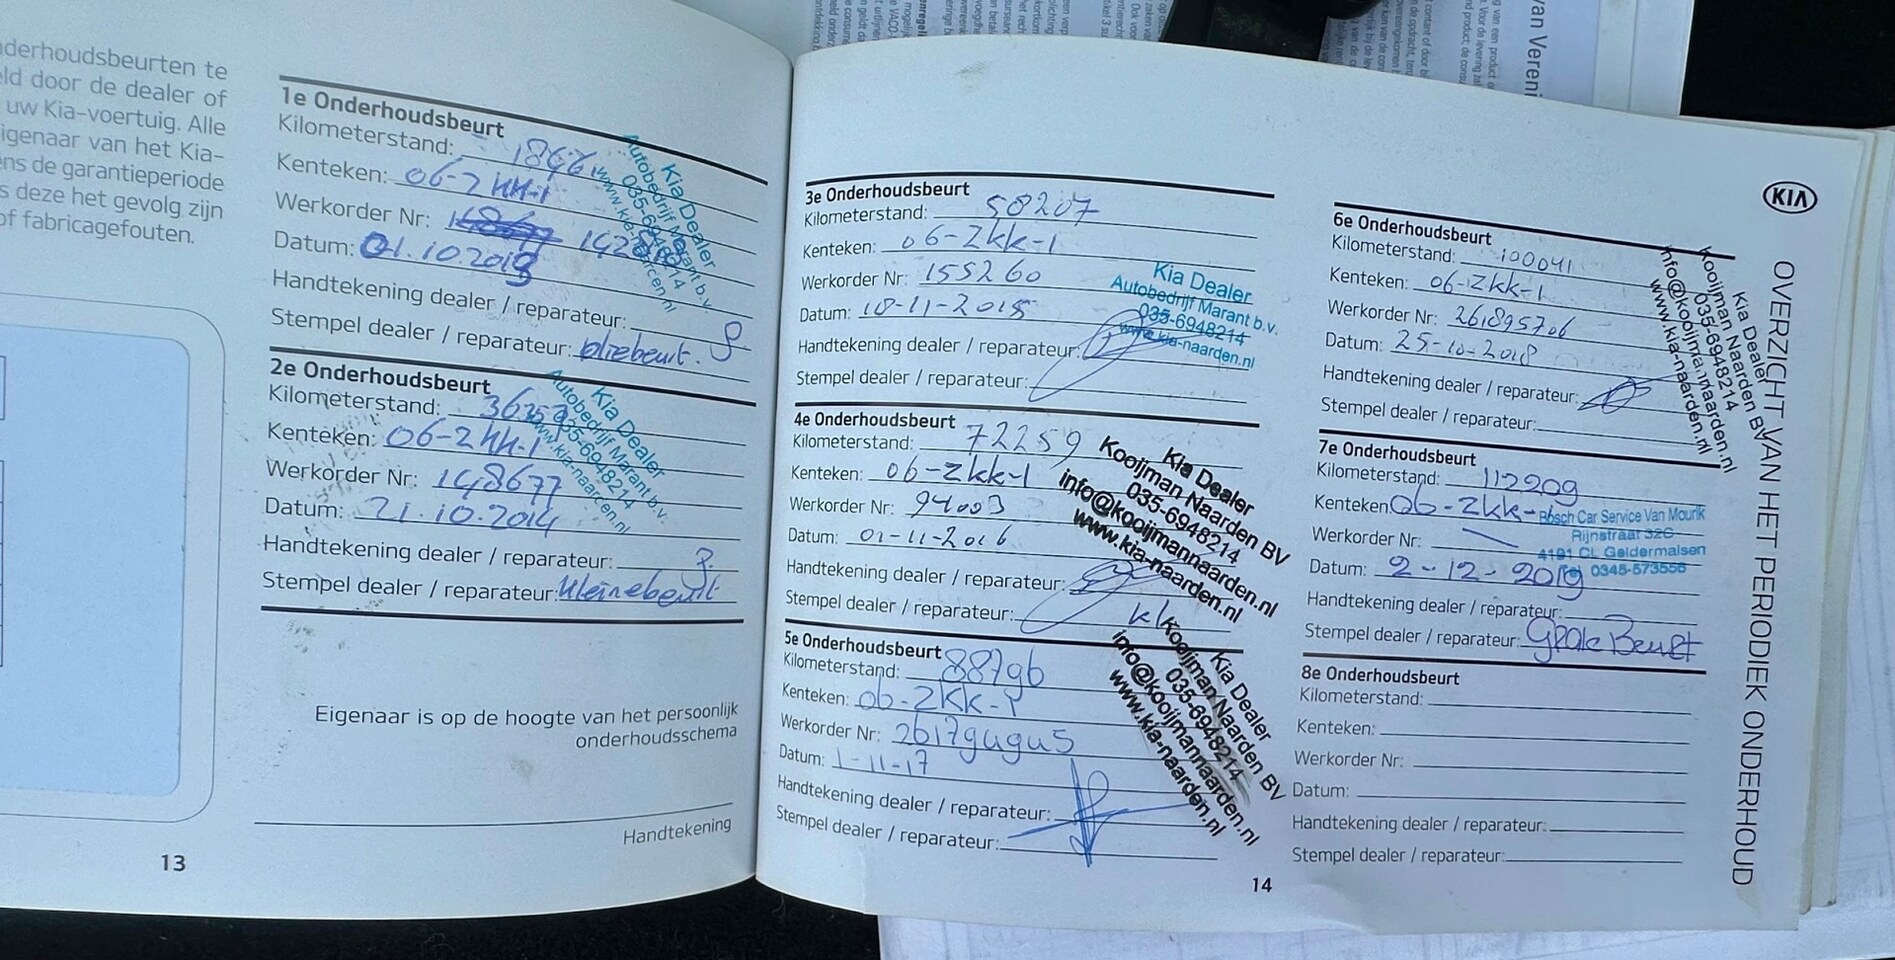 derhoudsbeurten te
ld door de dealer of
uw Kia-voertuig. Alle
igenaar van het Kia-
ens de garantieperiode
s deze het gevolg zijn
of fabricagefouten.
1e Onderhoudsbeurt
Kilometerstand:
Kenteken: 06-ZKK-1
Werkorder Nr:
Datum: 01.10.2013
Handtekening dealer / reparateur:
Stempel dealer / reparateur: oliebeurt.
Kia Dealer
Autobedrijf Marant b.v.
035-6948214
www.kia-naarden.nl
2e Onderhoudsbeurt
Kilometerstand:
Kenteken: 06-ZKK-1
Werkorder Nr: 148677
Datum: 21.10.2014
Handtekening dealer / reparateur:
Stempel dealer / reparateur: kleinebeurt
Kia Dealer
Autobedrijf Marant b.v.
035-6948214
www.kia-naarden.nl
Eigenaar is op de hoogte van het persoonlijk
onderhoudsschema
Handtekening
13
3e Onderhoudsbeurt
Kilometerstand: 58207
Kenteken: 06-ZKK-1
Werkorder Nr: 155260
Datum: 10-11-2015
Handtekening dealer / reparateur:
Stempel dealer / reparateur:
Kia Dealer
Autobedrijf Marant b.v.
035-6948214
www.kia-naarden.nl
4e Onderhoudsbeurt
Kilometerstand: 72259
Kenteken: 06-ZKK-1
Werkorder Nr: 94003
Datum: 01-11-2016
Handtekening dealer / reparateur:
Stempel dealer / reparateur:
Kia Dealer
Kooijman Naarden BV
035-6948214
info@kooijmannaarden.nl
www.kia-naarden.nl
5e Onderhoudsbeurt
Kilometerstand: 88796
Kenteken: 06-ZKK-1
Werkorder Nr: 261794945
Datum: 1-11-17
Handtekening dealer / reparateur:
Stempel dealer / reparateur:
Kia Dealer
Kooijman Naarden BV
035-6948214
info@kooijmannaarden.nl
www.kia-naarden.nl
14
KIA
OVERZICHT VAN HET PERIODIEK ONDERHOUD
6e Onderhoudsbeurt
Kilometerstand: 100041
Kenteken: 06-ZKK-1
Werkorder Nr: 261895706
Datum: 25-10-2018
Handtekening dealer / reparateur:
Stempel dealer / reparateur:
Kia Dealer
Kooijman Naarden BV
035-6948214
info@kooijmannaarden.nl
www.kia-naarden.nl
7e Onderhoudsbeurt
Kilometerstand: 112209
Kenteken: 06-ZKK-1
Werkorder Nr:
Datum: 2-12-2019
Handtekening dealer / reparateur:
Stempel dealer / reparateur: Grote Beurt
Bosch Car Service Van Mourik
Rijnstraat 32C
4191 CL Geldermalsen
Tel. 0345-573556
8e Onderhoudsbeurt
Kilometerstand:
Kenteken:
Werkorder Nr:
Datum:
Handtekening dealer / reparateur:
Stempel dealer / reparateur:
van Vereni